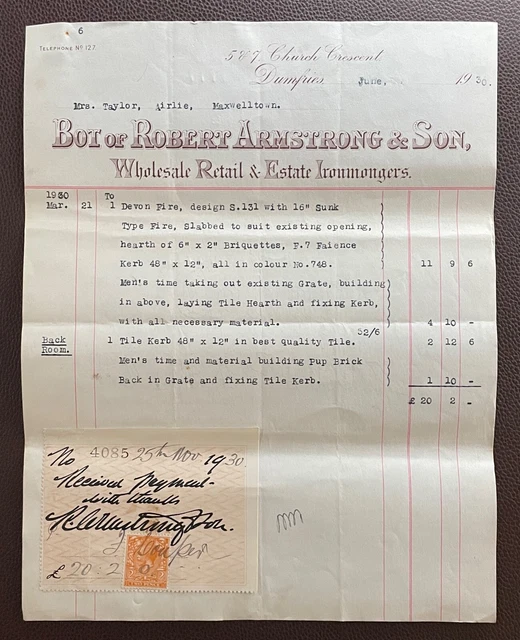 6
TELEPHONE Nº 127.
5 & 7 Church Crescent
Dumfries June, 1930.
Mrs. Taylor, Airlie, Maxwelltown.
BOT OF ROBERT ARMSTRONG & SON,
Wholesale Retail & Estate Ironmongers.
1930 To
Mar. 21 1 Devon Fire, design S.131 with 16" Sunk
Type Fire, Slabbed to suit existing opening,
hearth of 6" x 2" Briquettes, F.7 Faience
Kerb 48" x 12", all in colour No.748. 11 9 6
Men's time taking out existing Grate, building
in above, laying Tile Hearth and fixing Kerb,
with all necessary material. 4 10 -
52/6
Back Room. 1 Tile Kerb 48" x 12" in best Quality Tile. 2 12 6
Men's time and material building Pup Brick
Back in Grate and fixing Tile Kerb. 1 10 -
£ 20 2 -
No 4085 25th Nov. 1930
Received payment
with thanks
R. Armstrong & Son.
£ 20 : 2 0